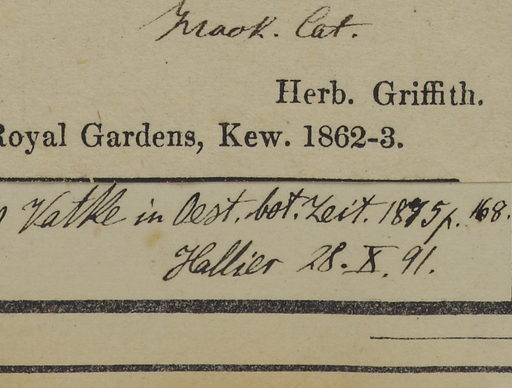 Hook. Cat.
Herb. Griffith.
Royal Gardens, Kew. 1862-3.
Vatke in Oest. bot. Zeit. 1875 p. 168.
Hallier 28. X. 91.